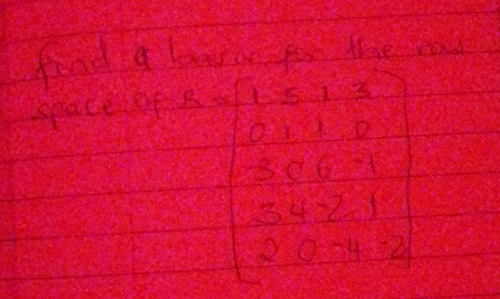 find a basis for the row
space of A = [1 3 1 3
0 1 1 0
3 0 6 -1
3 4 -2 1
2 0 -4 -2]